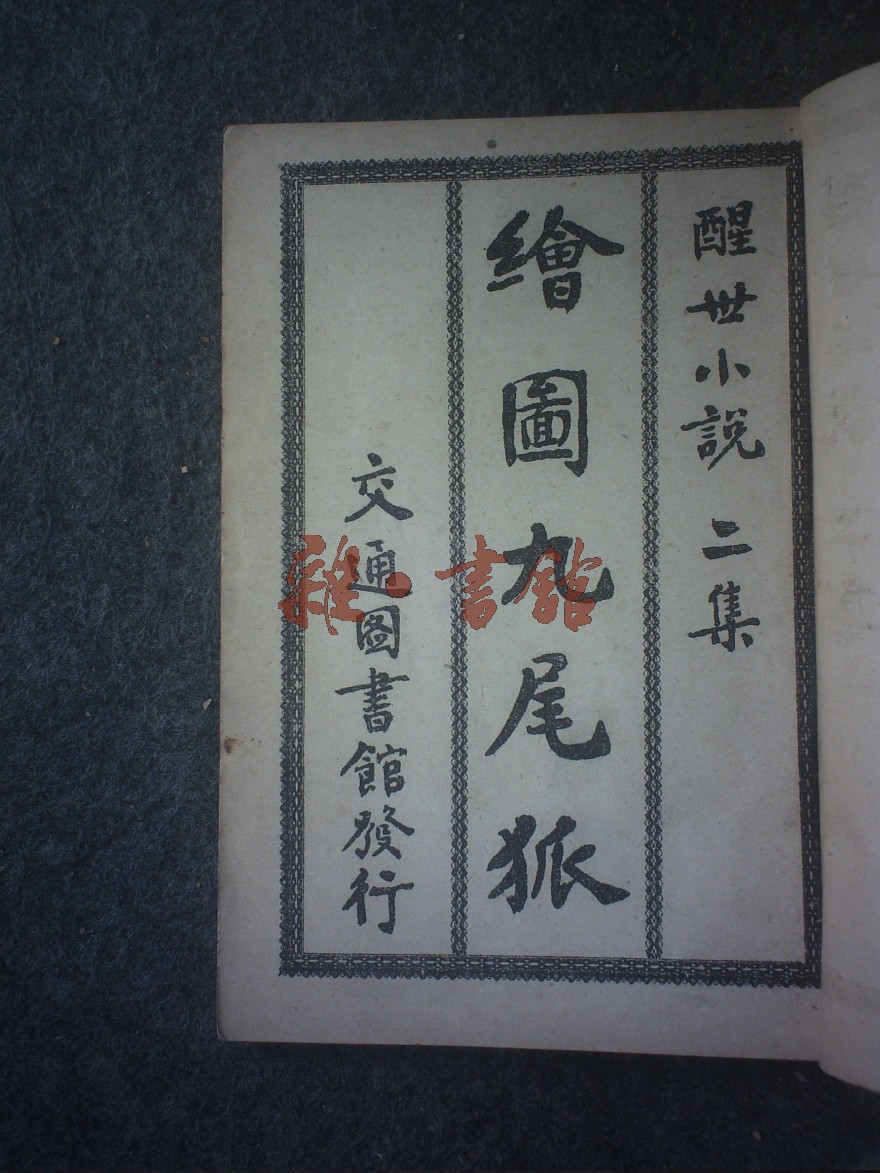 醒世小説 二集
繪圖九尾狐
交通圖書館發行
雜·書館